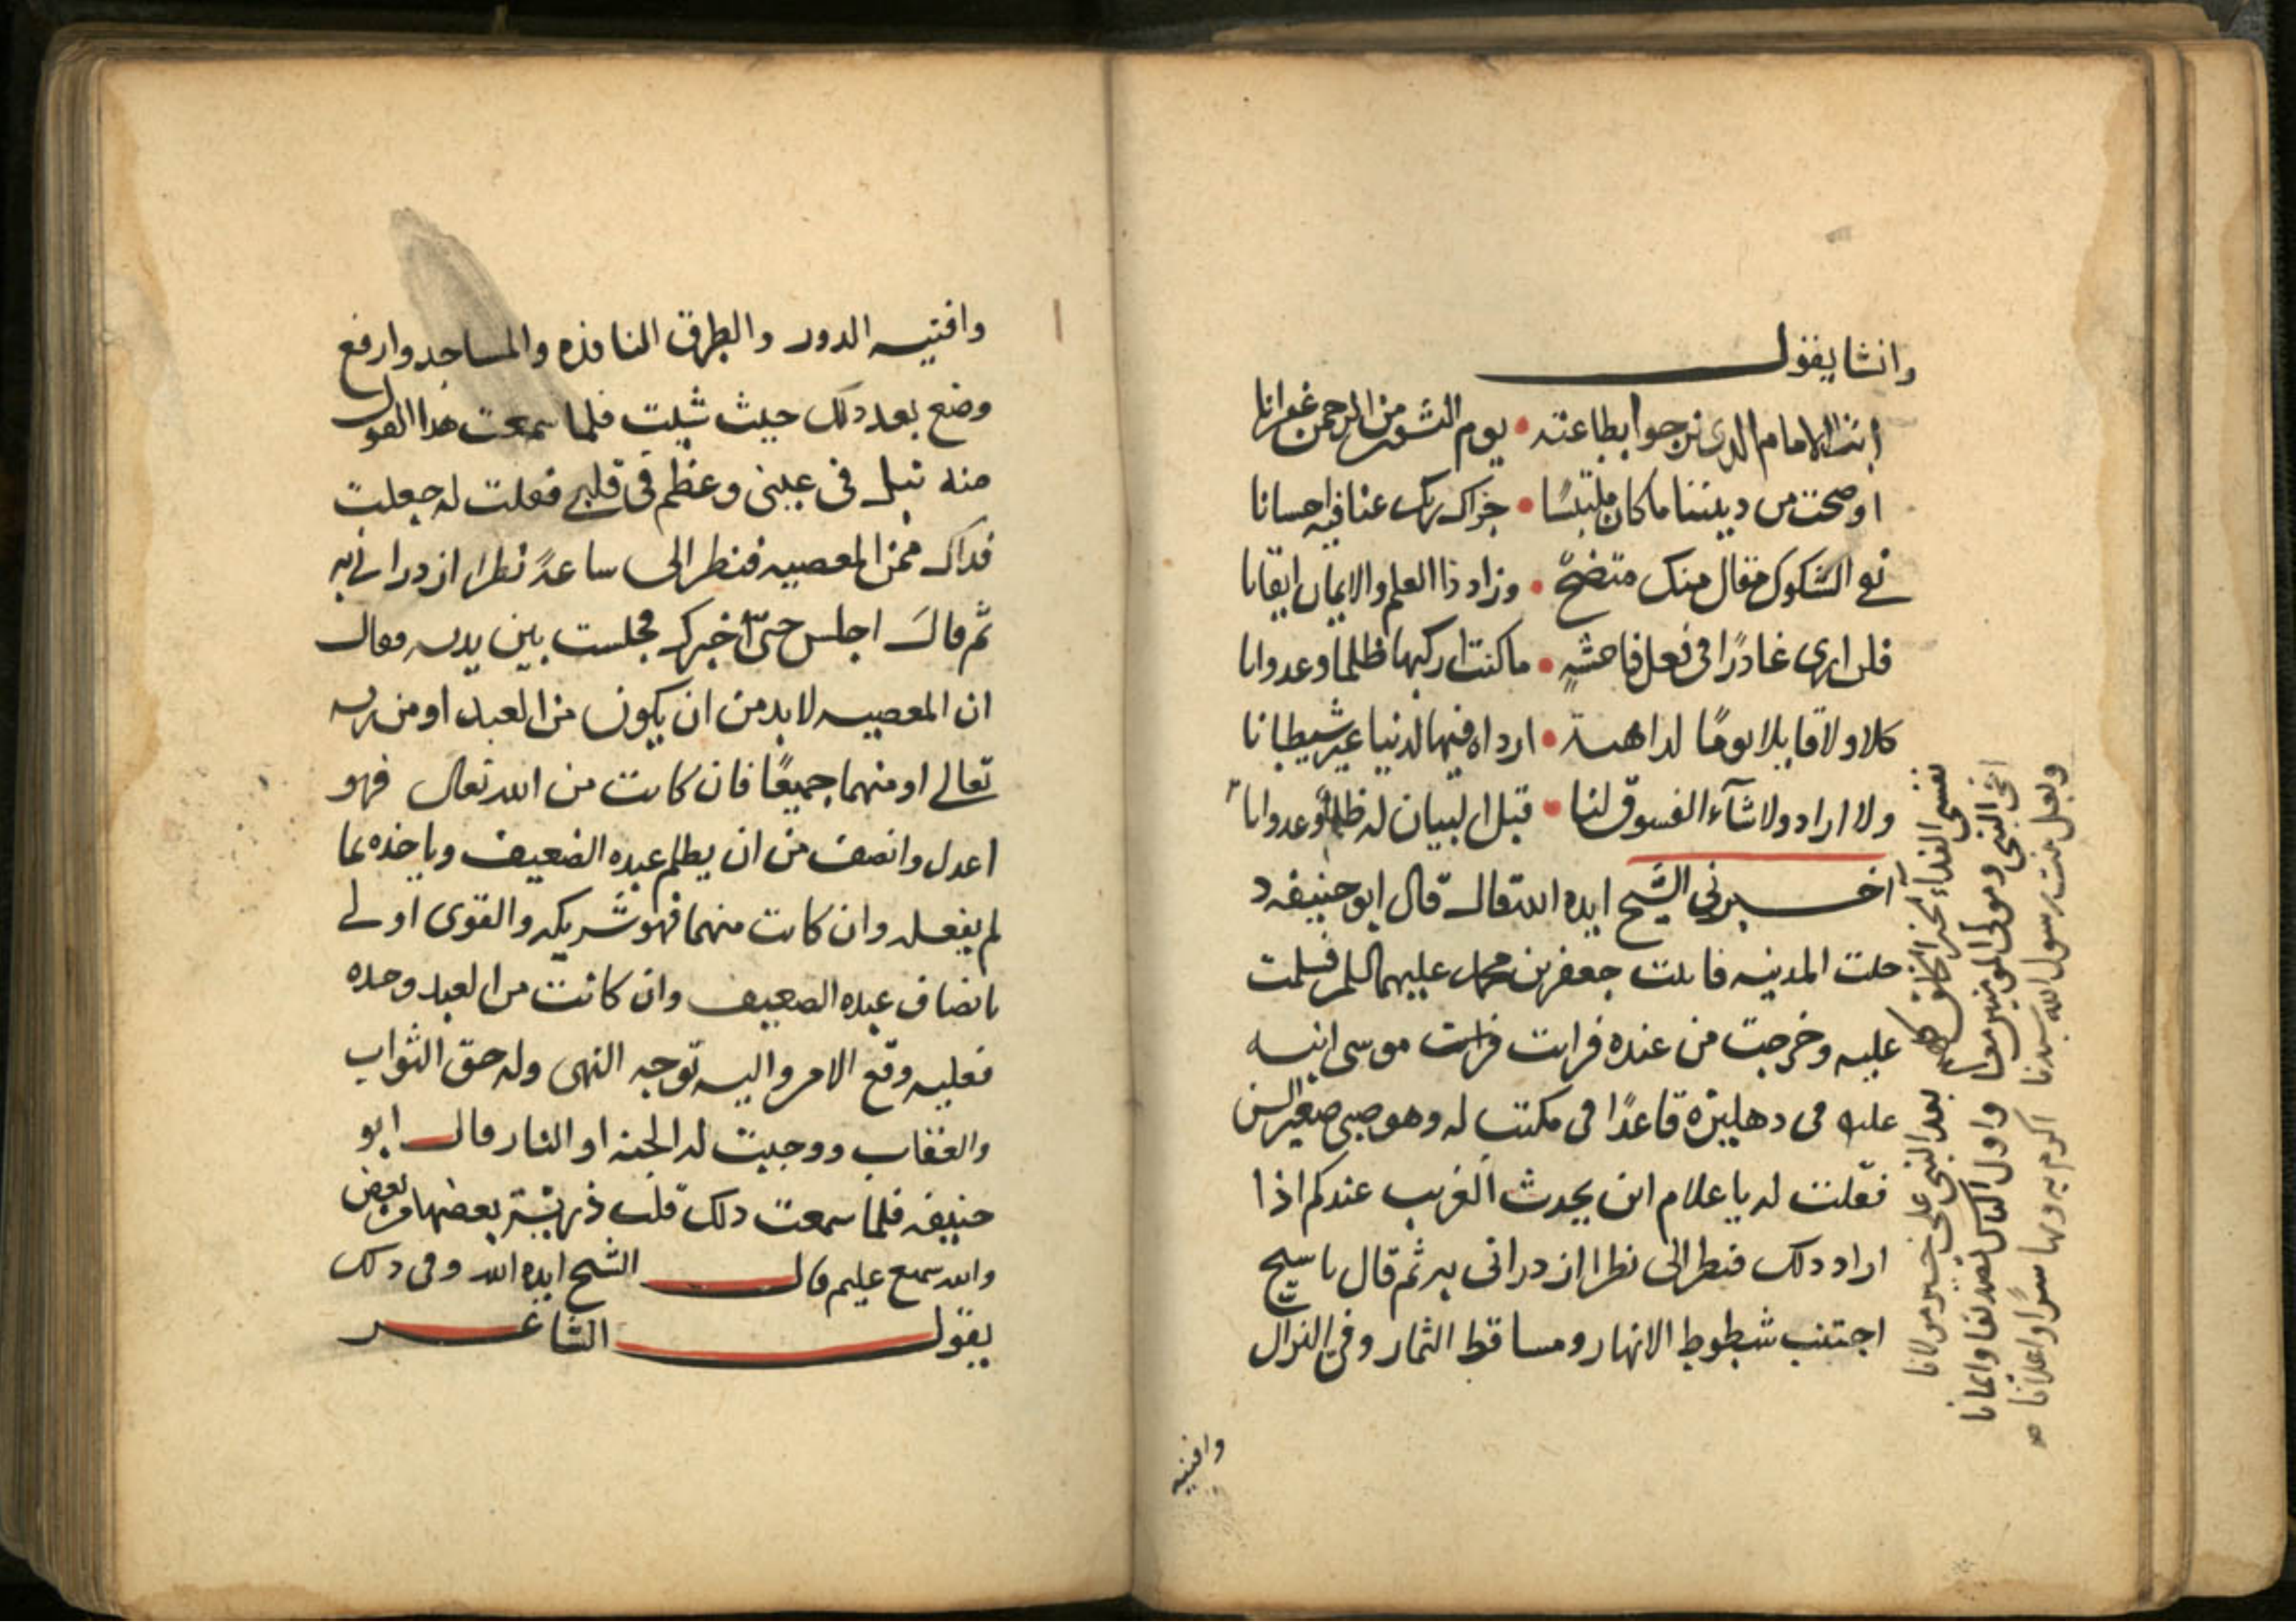 وانشا يقول
انت الامام الذى نرجوا بطاعته • يوم النشور من الرحمن غفرانا
اوضحت من ديننا ما كان ملتبسًا • جزاك ربك عنا فيه احسانا
نفى الشكوك مقال منك متضحٌ • وزاد ذا العلم والايمان ايقانا
فلن ارى غادرًا فى فعل فاحشةٍ • ما كنت راكبها ظلما وعدوانا
كلا ولا قايلا يومًا لداهية • ارداه فيها لدنيا غير شيطانا
ولا اراد ولا شآء الفسوق لنا • قبل البيان له ظلمًا وعدوانا
آخبرنى الشيخ ايده الله قال قال ابو حنيفه د
خلت المدينه فاتيت جعفر بن محمد عليهما السلم فسلمت
عليه وخرجت من عنده فرايت موسى ابنه
عليه فى دهليزه قاعدًا فى مكتب له وهو صبى صغير السن
فقلت له يا غلام اين يحدث الغريب عندكم اذا
اراد ذلك فنظر الى نظرا ازدرانى به ثم قال يا شيخ
اجتنب شطوط الانهار ومساقط الثمار وفى النزال
وافنيه
نفسى الفداء لخير الخلق كلهم بعد النبى على خير مولانا
اخى النبى ومولى المومنين معًا واول الناس تصديقا وايمانا
وبعل بنت رسول الله سيدنا اكرم به وبها سرًا واعلانا
وافنيه الدور والطرق النافذه والمساجد وارفع
وضع بعد ذلك حيث شيت فلما سمعت هذا القول
منه نبل فى عينى وعظم فى قلبى فقلت له جعلت
فداك ممن المعصيه فنظر الى ساعةً نظرا ازدرانى به
ثم قال اجلس حتى اخبرك فجلست بين يديه فقال
ان المعصيه لا بد من ان يكون من العبد او من ربه
تعالى او منهما جميعًا فان كانت من الله تعالى فهو
اعدل وانصف من ان يظلم عبده الضعيف وياخذه بما
لم يفعله وان كانت منهما فهو شريكه والقوى اولى
بانصاف عبده الضعيف وان كانت من العبد وحده
فعليه وقع الامر واليه توجه النهى وله حق الثواب
والعقاب ووجبت له الجنه او النار قال ابو
حنيفه فلما سمعت ذلك قلت ذرية بعضها من بعض
والله سميع عليم قال الشيخ ايده الله وفى ذلك
يقول الشاعر